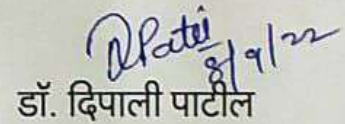 DPatil
8/9/22
डॉ. दिपाली पाटील